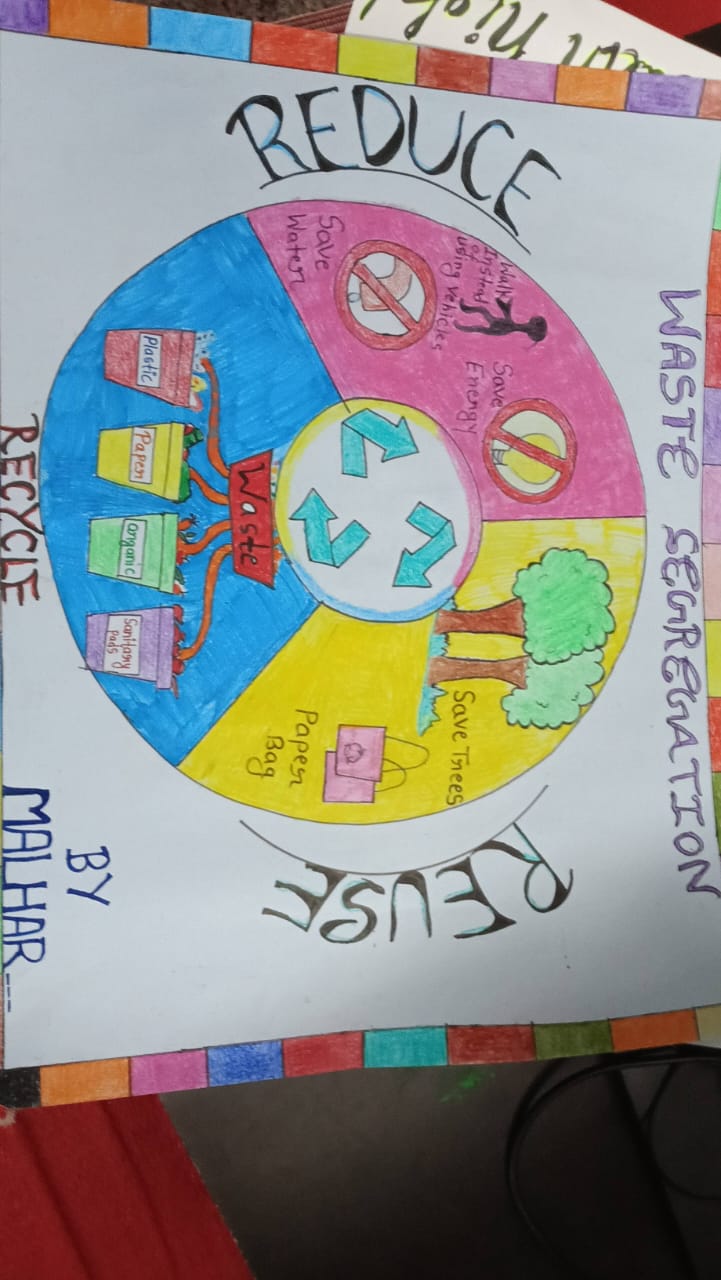 WASTE SEGREGATION
REDUCE
Walk
Instead
of
using vehicles
Save
Water
Save
Energy
Save Trees
Paper
Bag
REUSE
Waste
Plastic
Paper
Organic
Sanitary
Pads
RECYCLE
BY
MALHAR